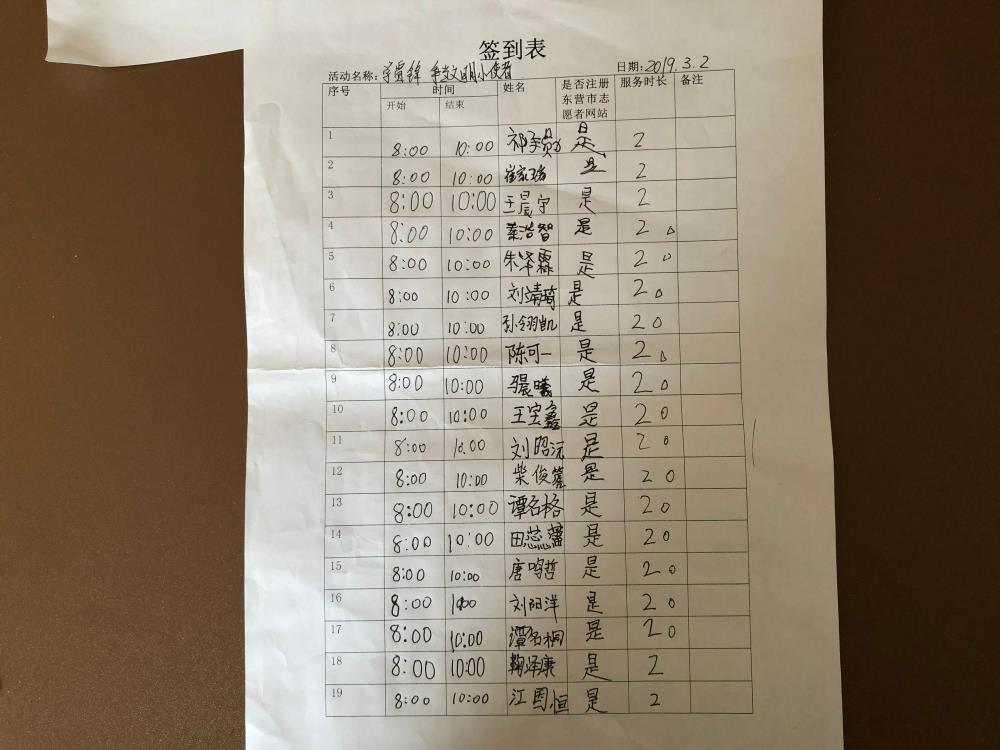 签到表
活动名称:学雷锋 争文明小使者 日期:2019.3.2
序号 时间 开始 结束 姓名 是否注册东营市志愿者网站 服务时长 备注
1 8:00 10:00 祁子 是 2
2 8:00 10:00 崔家瑞 是 2
3 8:00 10:00 王晨宇 是 2
4 8:00 10:00 蔡浩智 是 2 0
5 8:00 10:00 朱华霖 是 2 0
6 8:00 10:00 刘靖琦 是 2 0
7 8:00 10:00 孙翎凯 是 2 0
8 8:00 10:00 陈可一 是 2 0
9 8:00 10:00 晨曦 是 2 0
10 8:00 10:00 王宝鑫 是 2 0
11 8:00 10.00 刘昭沅 是 2 0
12 8:00 10:00 柴俊 是 2 0
13 8:00 10:00 谭名格 是 2 0
14 8:00 10:00 田蕊馨 是 2 0
15 8:00 10:00 唐鸣哲 是 2 0
16 8:00 10:00 刘阳洋 是 2 0
17 8:00 10:00 谭名桐 是 2 0
18 8:00 10:00 鞠泽康 是 2
19 8:00 10:00 江圊恒 是 2